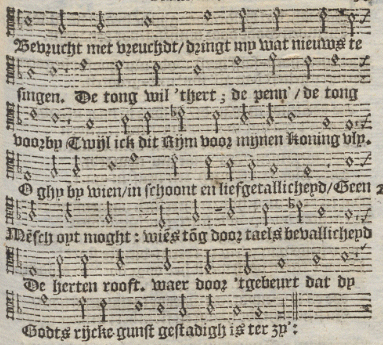 Bevrucht met vreuchdt/dringt my wat nieuws te
singen. De tong wil 'thert; de penn'/de tong
voorby Twijl ick dit Rijm voor mijnen Koning vly.
O ghy by wien/in schoont en liefgetallicheyd/Geen 2
Mẽsch oyt moght: wiẽs tõg door taels bevallicheyd
De herten rooft. waer door 'tgebeurt dat dy
Godts rijcke gunst gestadigh is ter zy':